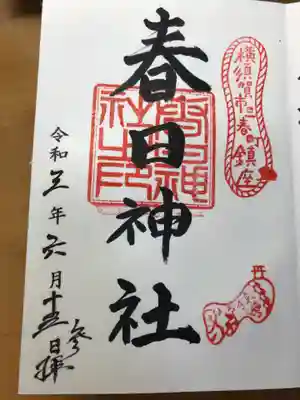 横須賀市三春町鎮座
春日神社
春日神社之印
令和三年六月十五日参拝